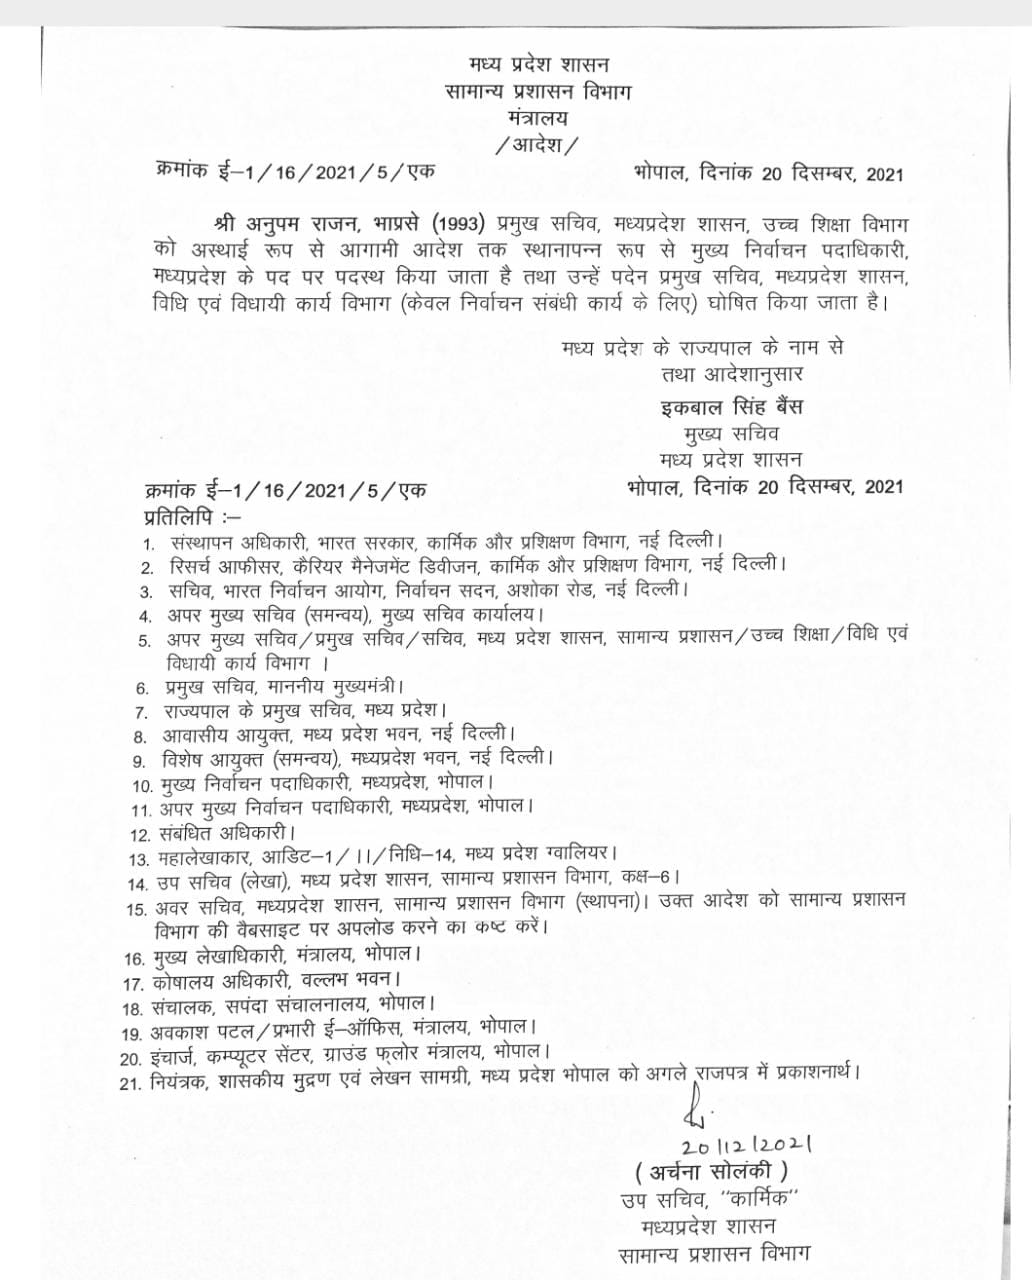 मध्य प्रदेश शासन
सामान्य प्रशासन विभाग
मंत्रालय
/आदेश/
क्रमांक ई–1/16/2021/5/एक
भोपाल, दिनांक 20 दिसम्बर, 2021
श्री अनुपम राजन, भाप्रसे (1993) प्रमुख सचिव, मध्यप्रदेश शासन, उच्च शिक्षा विभाग
को अस्थाई रूप से आगामी आदेश तक स्थानापन्न रूप से मुख्य निर्वाचन पदाधिकारी,
मध्यप्रदेश के पद पर पदस्थ किया जाता है तथा उन्हें पदेन प्रमुख सचिव, मध्यप्रदेश शासन,
विधि एवं विधायी कार्य विभाग (केवल निर्वाचन संबंधी कार्य के लिए) घोषित किया जाता है।
मध्य प्रदेश के राज्यपाल के नाम से
तथा आदेशानुसार
इकबाल सिंह बैंस
मुख्य सचिव
मध्य प्रदेश शासन
क्रमांक ई–1/16/2021/5/एक
भोपाल, दिनांक 20 दिसम्बर, 2021
प्रतिलिपि :–
1. संस्थापन अधिकारी, भारत सरकार, कार्मिक और प्रशिक्षण विभाग, नई दिल्ली।
2. रिसर्च आफीसर, कैरियर मैनेजमेंट डिवीजन, कार्मिक और प्रशिक्षण विभाग, नई दिल्ली।
3. सचिव, भारत निर्वाचन आयोग, निर्वाचन सदन, अशोका रोड, नई दिल्ली।
4. अपर मुख्य सचिव (समन्वय), मुख्य सचिव कार्यालय।
5. अपर मुख्य सचिव/प्रमुख सचिव/सचिव, मध्य प्रदेश शासन, सामान्य प्रशासन/उच्च शिक्षा/विधि एवं
विधायी कार्य विभाग ।
6. प्रमुख सचिव, माननीय मुख्यमंत्री।
7. राज्यपाल के प्रमुख सचिव, मध्य प्रदेश।
8. आवासीय आयुक्त, मध्य प्रदेश भवन, नई दिल्ली।
9. विशेष आयुक्त (समन्वय), मध्यप्रदेश भवन, नई दिल्ली।
10. मुख्य निर्वाचन पदाधिकारी, मध्यप्रदेश, भोपाल।
11. अपर मुख्य निर्वाचन पदाधिकारी, मध्यप्रदेश, भोपाल।
12. संबंधित अधिकारी।
13. महालेखाकार, आडिट–1/।।/निधि–14, मध्य प्रदेश ग्वालियर।
14. उप सचिव (लेखा), मध्य प्रदेश शासन, सामान्य प्रशासन विभाग, कक्ष–6।
15. अवर सचिव, मध्यप्रदेश शासन, सामान्य प्रशासन विभाग (स्थापना)। उक्त आदेश को सामान्य प्रशासन
विभाग की वैबसाइट पर अपलोड करने का कष्ट करें।
16. मुख्य लेखाधिकारी, मंत्रालय, भोपाल।
17. कोषालय अधिकारी, वल्लभ भवन।
18. संचालक, सपंदा संचालनालय, भोपाल।
19. अवकाश पटल/प्रभारी ई–ऑफिस, मंत्रालय, भोपाल।
20. इंचार्ज, कम्प्यूटर सेंटर, ग्राउंड फ्लोर मंत्रालय, भोपाल।
21. नियंत्रक, शासकीय मुद्रण एवं लेखन सामग्री, मध्य प्रदेश भोपाल को अगले राजपत्र में प्रकाशनार्थ।
20/12/2021
( अर्चना सोलंकी )
उप सचिव, "कार्मिक"
मध्यप्रदेश शासन
सामान्य प्रशासन विभाग